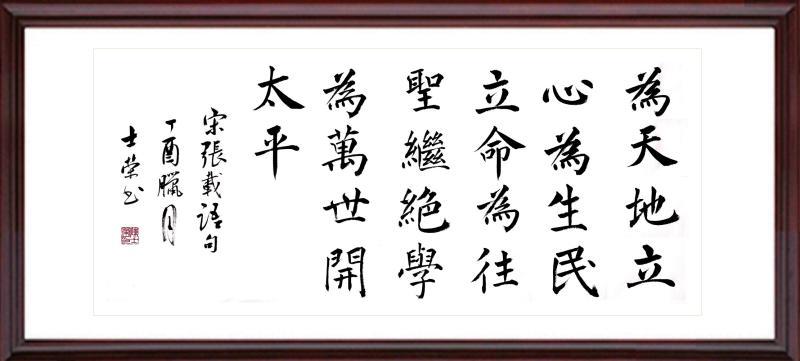 為天地立
心為生民
立命為往
聖繼絕學
為萬世開
太平
宋張載語句
丁酉臘月
士榮书